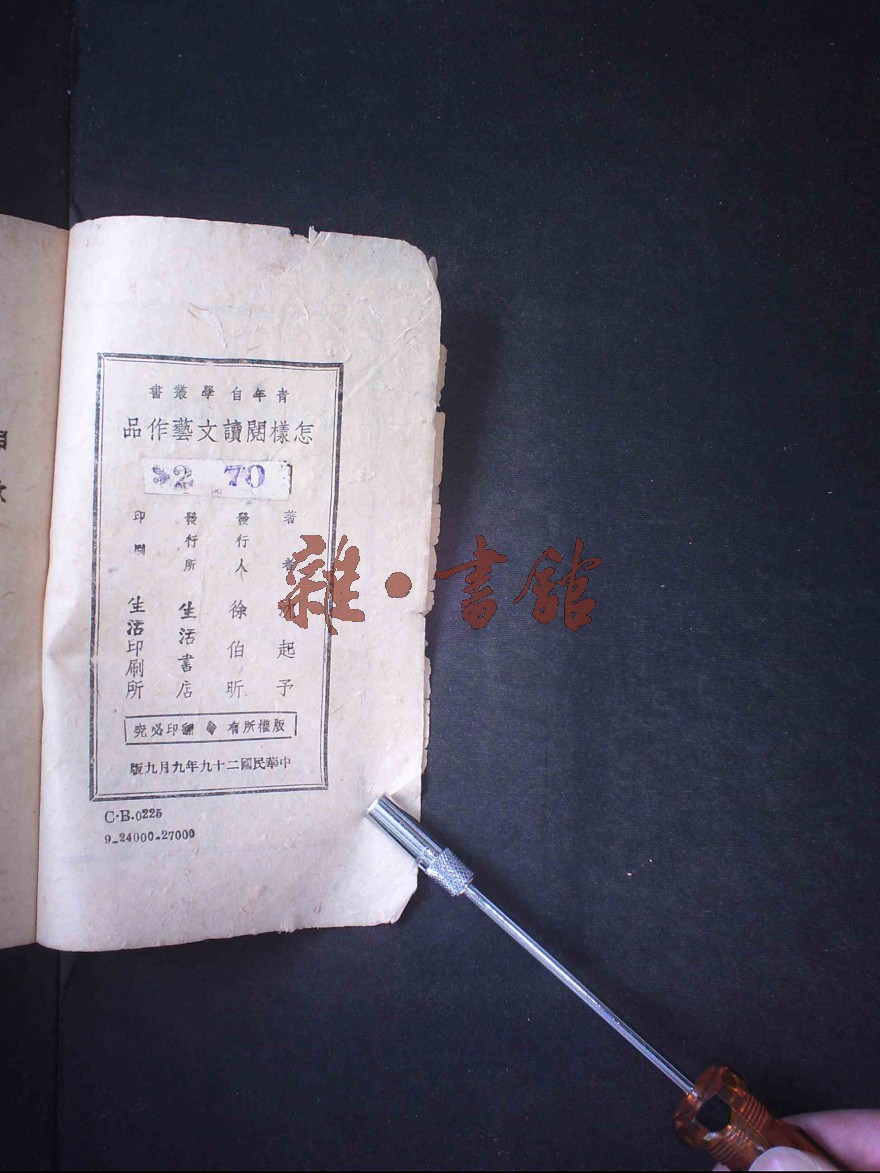 青年自學叢書
怎樣閱讀文藝作品
$2 70
著者 沈起予
發行人 徐伯昕
發行所 生活書店
印刷 生活印刷所
版權所有 翻印必究
中華民國二十九年九月九版
C·B·0225
9-24000-27000
雜·書館